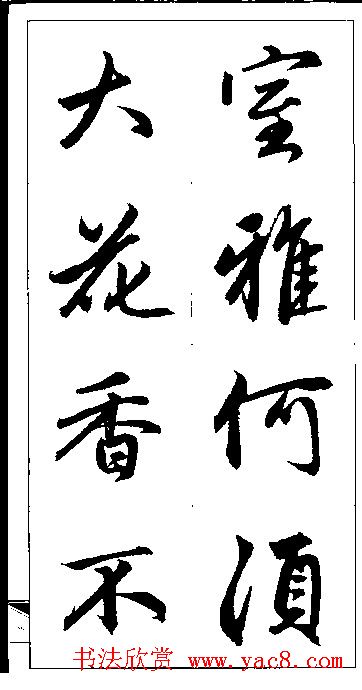 室雅何須
大花香不
书法欣赏 www.yac8.com